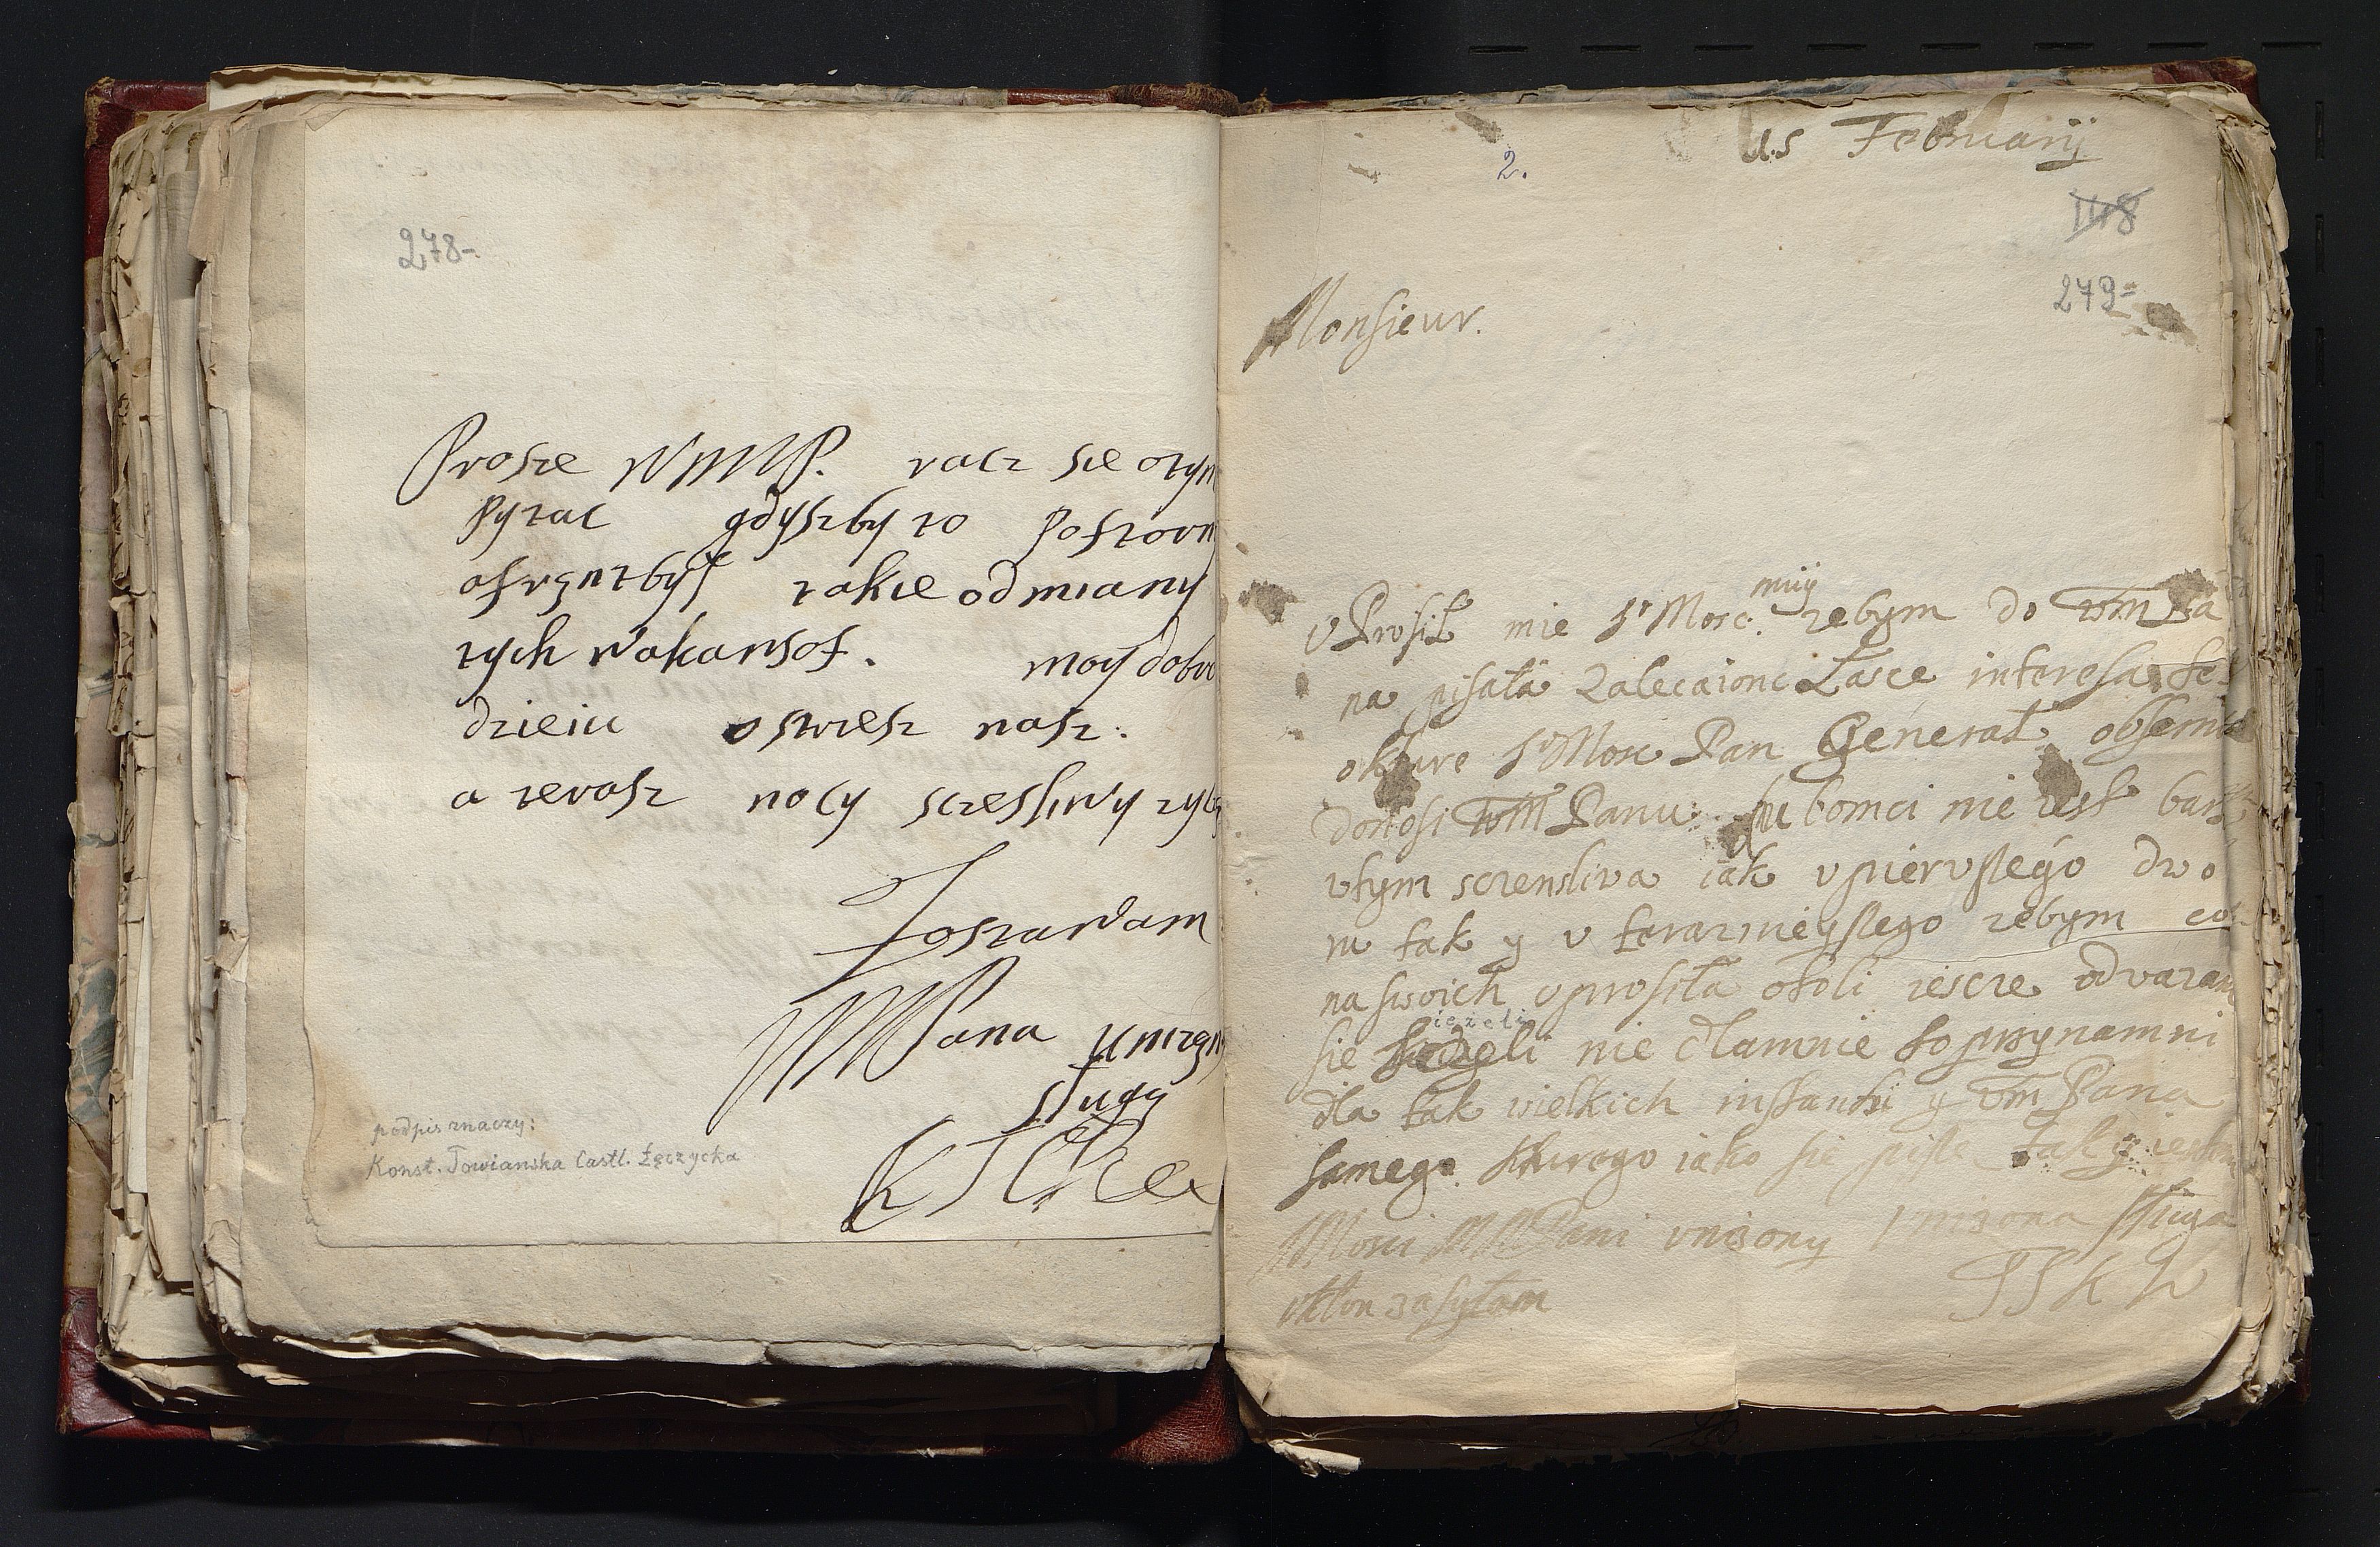 278-
Prosze WMMP. racz sie otym
pytac gdyszby to
takie odmiany
tych Wakansof. moy dobro
dzieiu oswiesz nasz.
a teraz nocy sczesliwy zycz
Zostawam
WMMPana unizon
sługą
KTCŁ
podpis znaczy:
Konst. Towianska Castl. Łęczycka
2.
Februarij
1118
279=
Monsieur.
vProsił mie Jr Mosc. muy zebym do Wm Pa
na pisała Zalecaionc Łasce interesa
okture Jr Mosc Pan Generał
donosi WM Panu. lubomci nie iest bar
vtym sczensliva iak v pierwszego dwo
ru tak y v teraznieyszego zebym co
na swoich vprosiła otoli iescze odvazam
sie iezeli nie dlamnie to przynamni
dla tak wielkich instantii y Wm Pana
samego kturego iako sie pisze tak y iestem
Mosci MMPani vnizony vnizona sługa
vkłon zasyłam